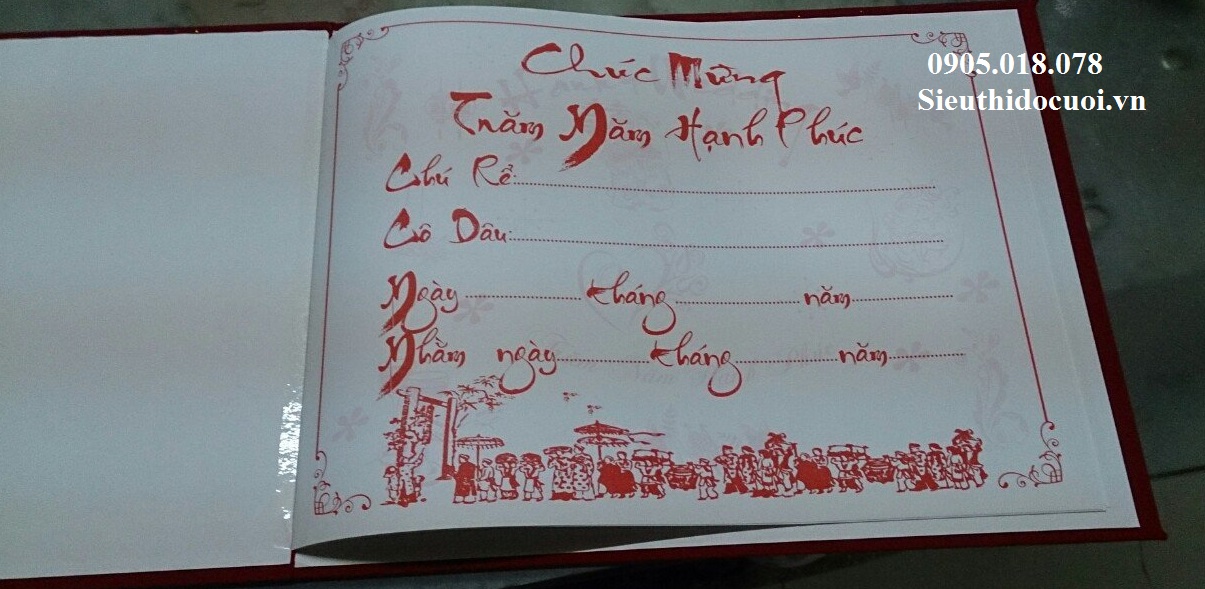 0905.018.078
Sieuthidocuoi.vn
Chúc Mừng
Trăm Năm Hạnh Phúc
Chú Rể:..........
Cô Dâu:..........
Ngày.......... tháng.......... năm..........
Nhằm ngày.......... tháng.......... năm..........